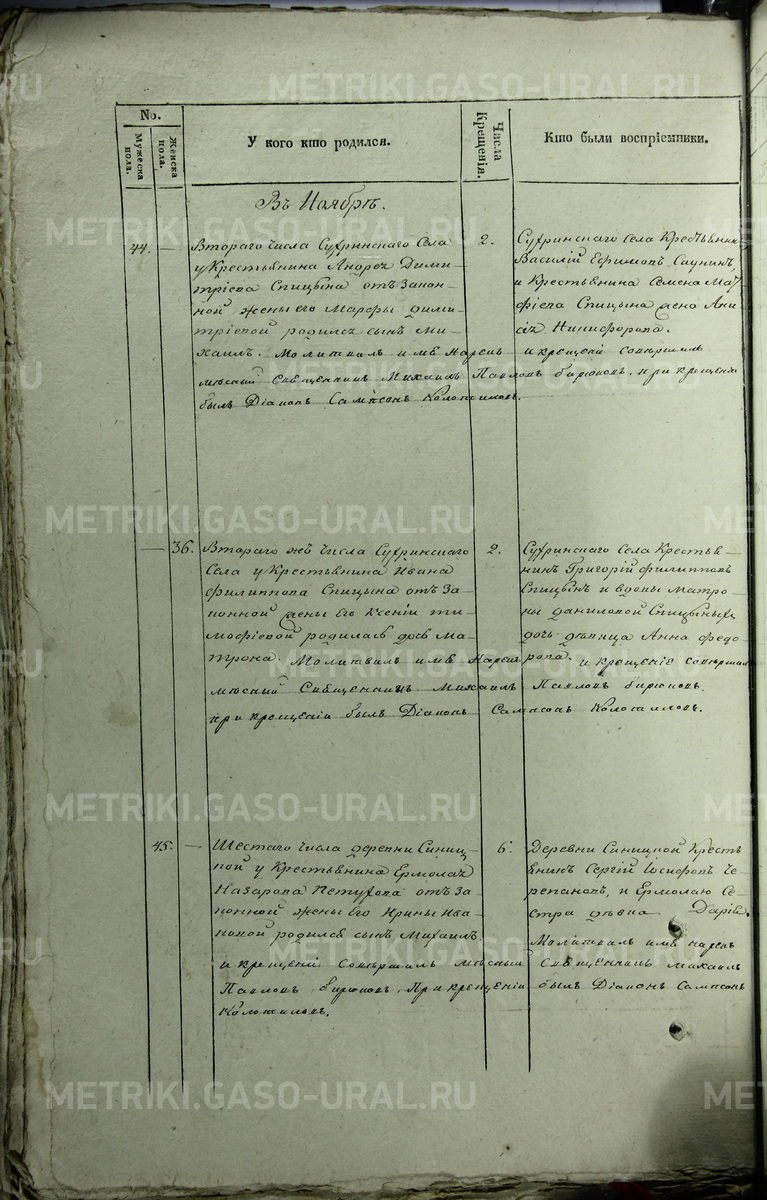 METRIKI.GASO-URAL.RU
No.
Мужеска пола.
Женска пола.
У кого кто родился.
Числа Крещенія.
Кто были воспріемники.
Въ Ноябрѣ.
44. — Втораго числа Сугринскаго Села
у Крестьянина Андрея Дими-
тріева Спицына отъ закон-
ной жены его Марфы Дими-
тріевой родился сынъ Ми-
хаилъ. Молитвилъ имѧ Нарекъ и крещеніе совершилъ
мѣсный Священникъ Михаилъ Павловъ Бирюковъ. при крещеніи
былъ Діаконъ Сампсонъ Колотиловъ.
2.
Сугринскаго Села Крестьянинъ
Василій Ефимовъ Саунинъ,
и Крестьянина Семена Мат-
фіева Спицына жена Ани-
сія Никифорова.
— 36. Втораго же числа Сугринскаго
Села у Крестьянина Ивана
Филиппова Спицына отъ за-
конной жены его Ксеніи Ти-
мофіевой родилась дочь Ма-
трона. Молитвилъ имѧ Нарекъ и крещеніе совершилъ
мѣсный Священникъ Михаилъ Павловъ Бирюковъ.
при крещеніи былъ Діаконъ Сампсонъ Колотиловъ.
2.
Сугринскаго Села Крестья-
нинъ Григорій Филипповъ
Спицынъ и вдовы Матро-
ны Даниловой Спицыных
дочь дѣвица Анна Федо-
рова.
45. — Шестаго числа деревни Синиц-
ной у Крестьянина Ермолая
Назарова Петухова отъ за-
конной жены его Ирины Ива-
новой родился сынъ Михаилъ
и крещеніе Совершилъ мѣсный Священникъ Михаилъ
Павловъ Бирюковъ. При крещеніи былъ Діаконъ Сампсонъ
Колотиловъ.
6.
Деревни Синицной Кресть
янинъ Сергій Іосифовъ Че-
репановъ, и Ермолаю Се-
стра дѣвка Дарія.
Молитвилъ имѧ нарекъ